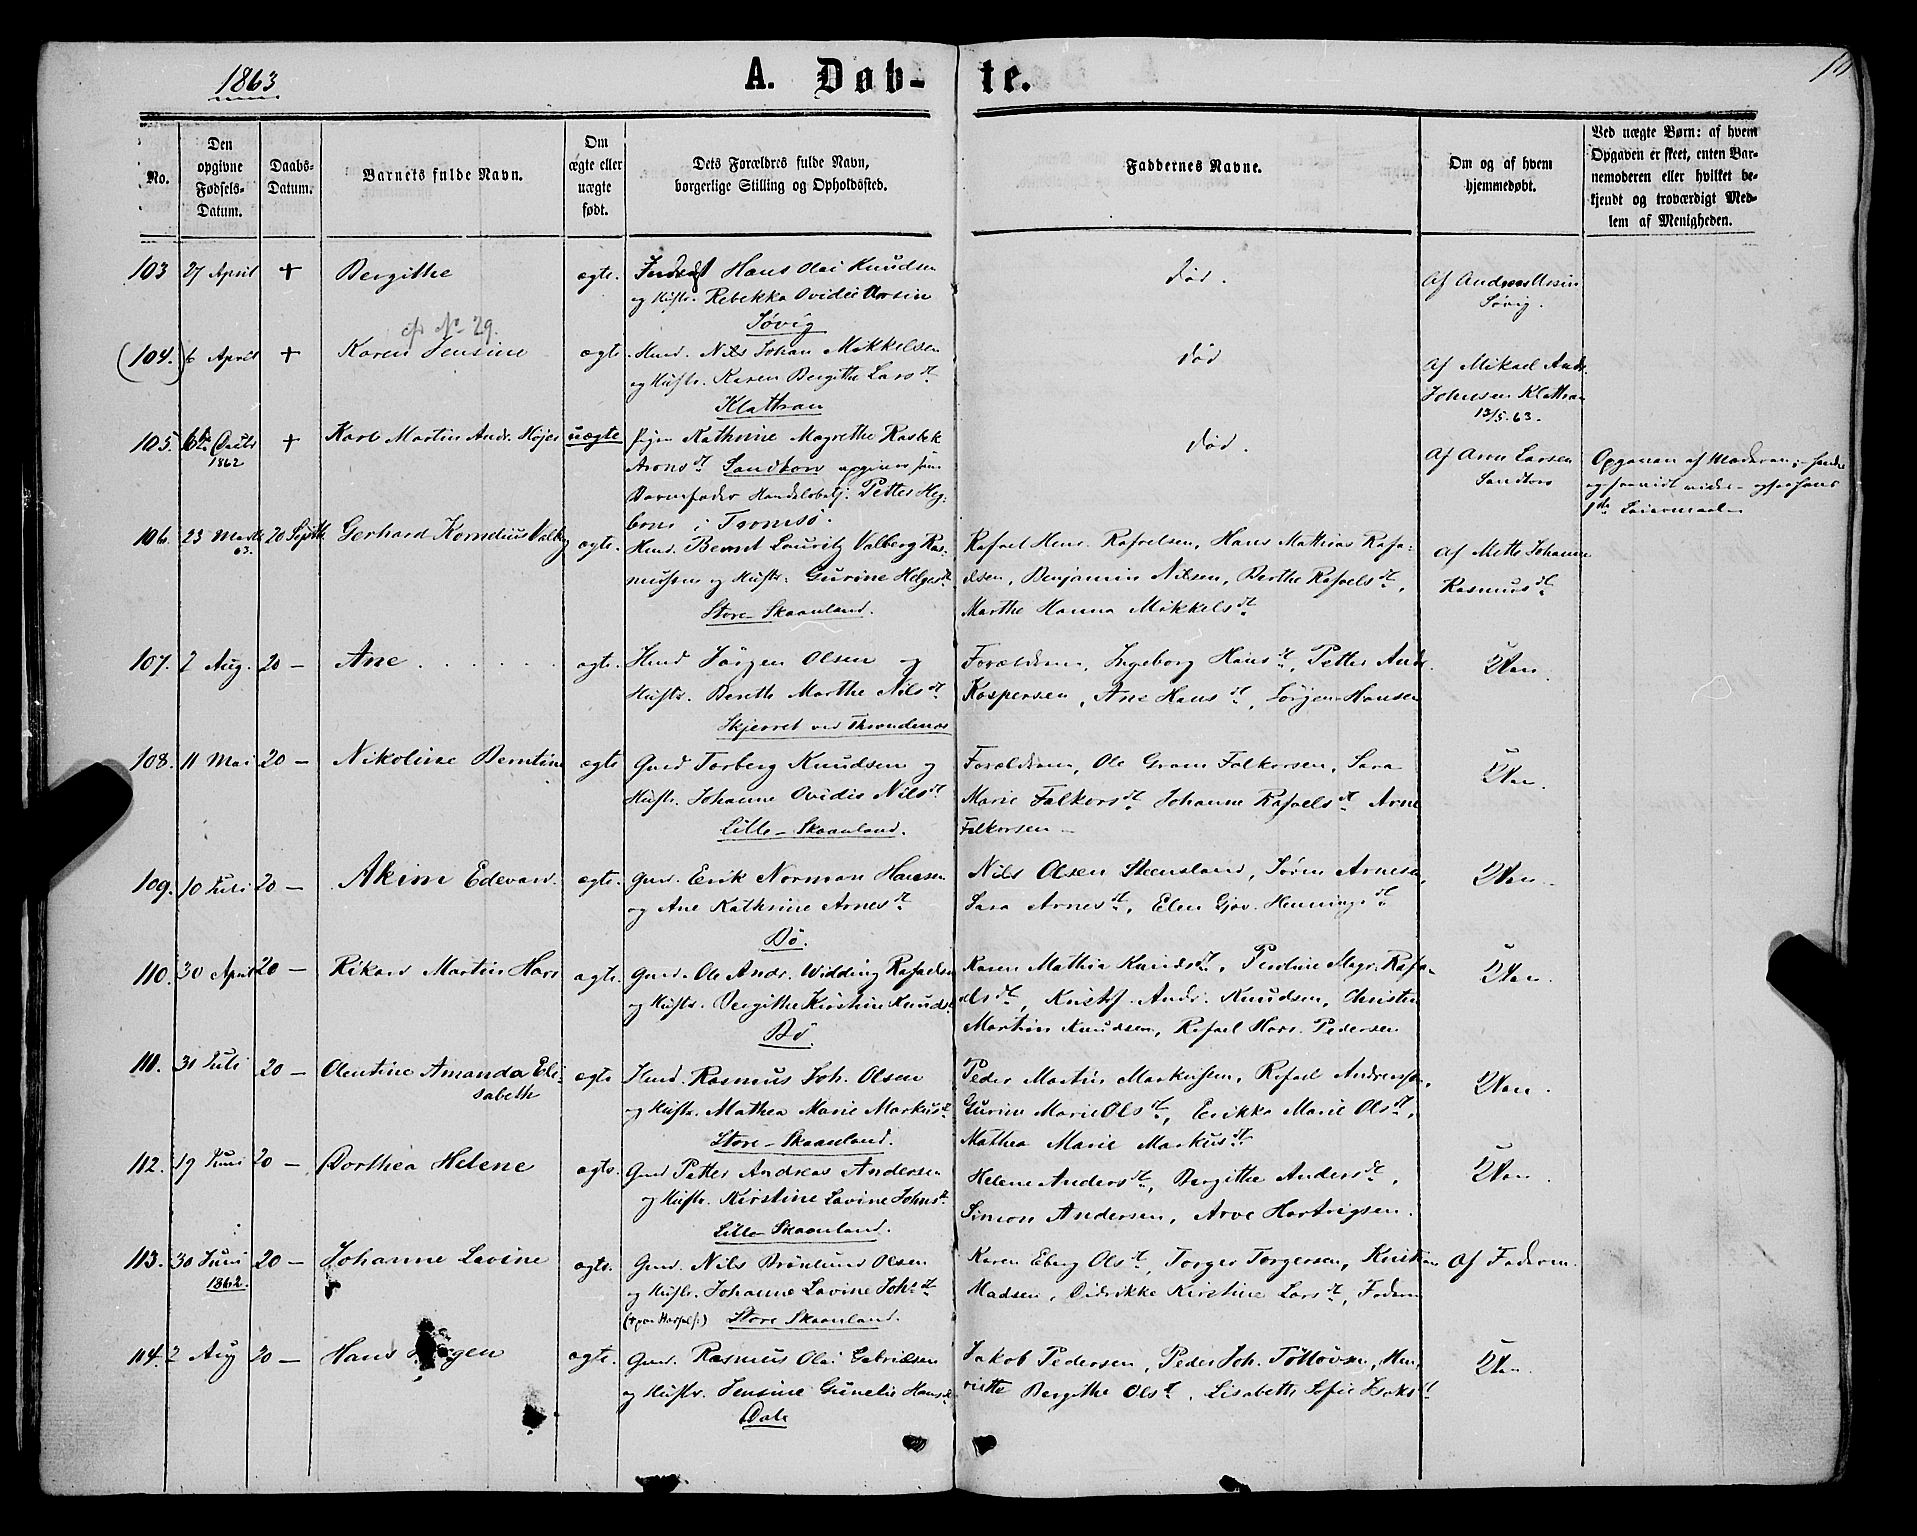 1863
A. Døb-
te.
No.
Den
opgivne
Fødsels-
Datum.
Daabs-
Datum.
Barnets fulde Navn.
Om
ægte eller
uægte
født.
Dets Forældres fulde Navn,
borgerlige Stilling og Opholdssted.
Faddernes Navne.
Om og af hvem
hjemmedøbt.
Ved uægte Børn: af hvem
Opgaven er skeet, enten Bar-
nemoderen eller hvilket be-
kjendt og troværdigt Med-
lem af Menigheden.
103 27 April + Bergithe ægte.
Hans Olai Knudsen
og Hustr. Rebekka Ovidie Ursin
Søvig
Død.
Af Andreas Ursin
Søvig.
cfr No 29.
(104.) 6 April + Karen Jensine ægte
Huusmd. Nils Johan Mikkelsen
og Hustr. Karen Bergithe Larsdt.
Klathran
Død
Af Mikael Andr.
Johnsen Klathran
13/5. 63.
105. 1862 + Karl Martin Andr. Højer uægte
Pigen Kathrine Magrethe Rasbek
Aronsdt. Sandtorv opgiver som
Barnefader Handelsbetj. Petter Heg-
i Tromsø.
Død.
Af Ane Larsen
Sandtorv
Opgaven af Moderen;
Leiermaal
106. 23 Marts 63. 20 Septb. Gerhard Kornelius Valberg ægte.
Huusmd. Bernt Lauritz Valberg Ras-
musen og Hustr. Gurine Helgesdt.
Store-Skaanland.
Rafael Hans. Rafaelsen, Hans Mathias Rafa-
elsen, Benjamin Nilsen, Berthe Rafaelsdt.,
Marthe Hanna Mikkelsdt.
Af Mette Johanna
Rasmusdt.
107. 2 Aug. 20 — Ane . . . . . . ægte.
Huusmd Jørgen Olsen og
Hustr. Berette Marthe Nilsdt.
Skjerret ved Throndenæs
Forældrene, Ingeborg Hansdt., Petter Andr.
Kaspersen, Ane Hansdt., Jørgen Hansen
Nei.
108. 11 Mai 20 — Nikoline Berntine ægte
Grmd Torberg Knudsen og
Hustr. Johanne Ovidia Nilsdt.
Lille-Skaanland.
Forældrene, Ole Gram Falkorsen, Sara
Marie Falkorsdt. Johanne Rafaelsdt. Arne
Falkorsen —
Nei.
109. 10 Juli 20 — Akim Edevard ægte.
Grmd. Erik Norman Hansen
og Ane Kathrine Arnesdt.
Bø.
Nils Olsen Steensland, Søren Arnesen,
Sara Arnesdt., Elen Gjør. Henningsdt.
Nei.
110. 30 April 20 — Rikard Martin Hars ægte.
Grmd. Ole Andr. Widding Rafaelsen
og Hustr. Bergithe Kirstine Knudsdt.
Bø.
Karen Mathia Knudsdt., Pauline Magr. Rafa-
elsdt., Kristof. Andr. Knudsen, Christen
Martin Knudsen, Rafael Hars. Pedersen
Nei.
111. 31 Juli 20 — Olentine Amanda Eli-
sabeth
ægte
Huusmd. Rasmus Joh. Olsen
og Hustr. Mathea Marie Markusdt.
Store-Skaanland.
Peder Martin Markussen, Rafael Andreassen,
Gurine Marie Olsdt., Erikka Marie Olsdt.,
Mathea Marie Markusdt.
Nei.
112. 19 Juni 20 — Dorthea Helene ægte.
Grmd Petter Andreas Andersen
og Hustr. Kirstine Lavine Johnsdt.
Lille-Skaanland.
Helene Andersdt., Bergithe Andersdt.,
Simon Andersen, Arve Hartvigsen.
Nei.
113. 30 Juni 1862. 20 — Johanne Lavine ægte.
Grmd. Nils Brønlund Olsen
og Hustr. Johanne Lavine Johsdt.
Store Skaanland.
Karen Eberg Olsdt., Torger Torgersen, Kristian
Madsen, Didrikke Kirstine Larsdt., Faderen
Af Faderen.
114. 2 Aug 20 — Hans Jørgen ægte.
Grmd. Rasmus Olai Gabrielsen
og Hustr. Jensine Gunelie Hansdt.
Dale
Jakob Pedersen, Peder Joh. Tollevsen, Hen-
riette Bergithe Olsdt., Lisabeth Sofie Isaksdt.
Nei.